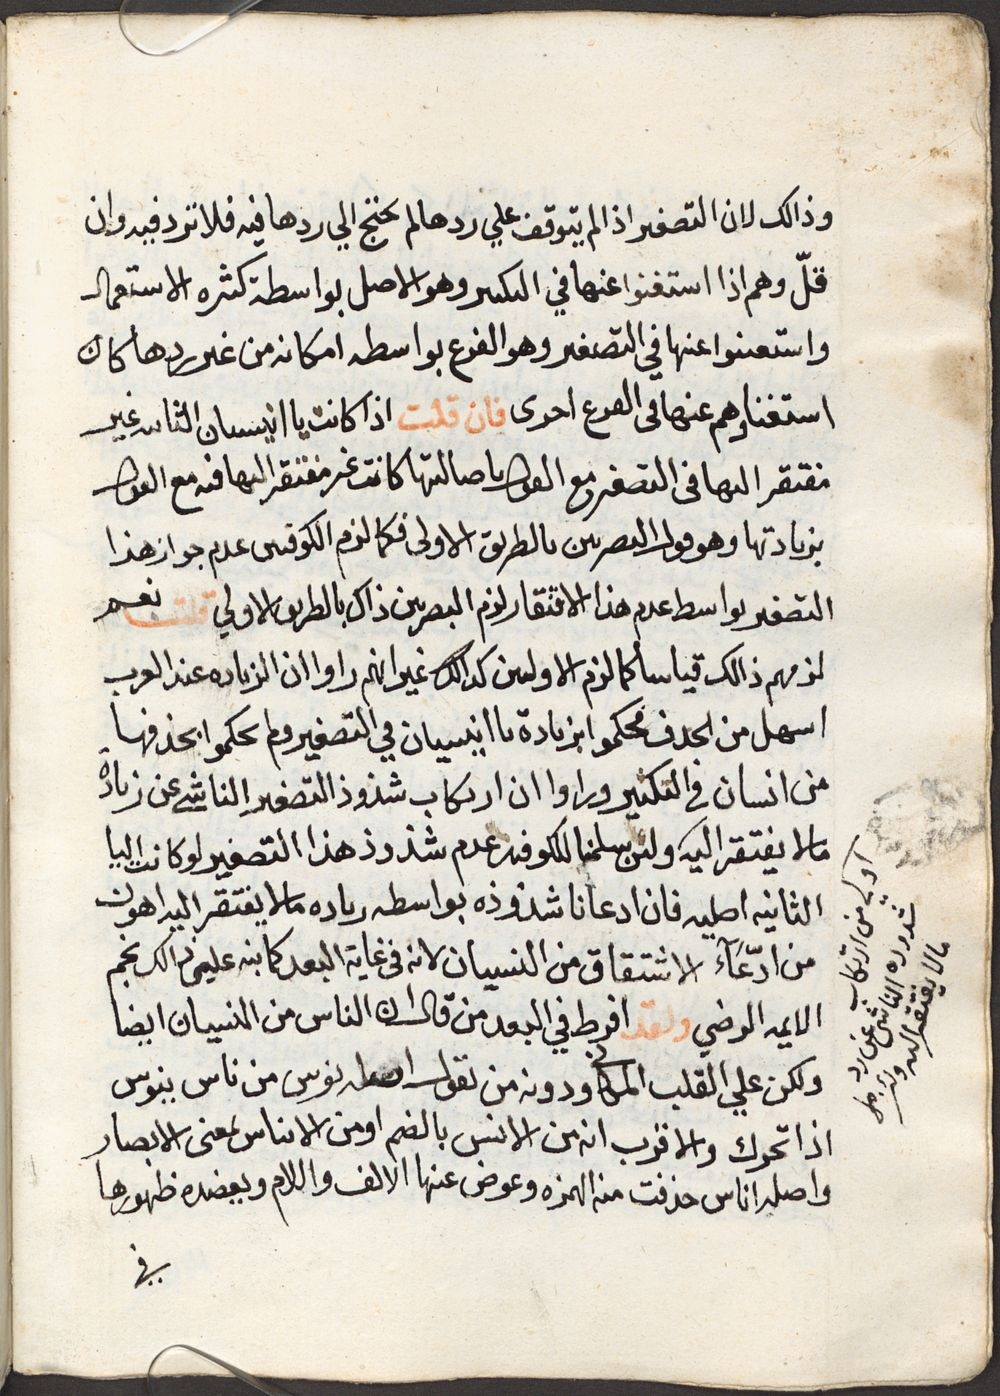 وذالك لان التصغير اذا لم يتوقف علي ردها لم يحتج الي ردها فيه فلا ترد فيه وان
قلّ وهم اذا استغنوا عنها في التكبير وهو الاصل بواسطة كثره الاستعمال
واستغنوا عنها في التصغير وهو الفرع بواسطه امكانه من غير ردها كان
استغناوهم عنها في الفرع احرى فان قلت اذا كانت يا انيسيان الثانيه غير
مفتقر اليها في التصغير مع القول باصالتها كانت غير مفتقر اليها فيه مع القول
بزيادتها وهو قول البصريين بالطريق الاولى فكما لزم الكوفيين عدم جواز هذا
التصغير بواسط عدم هذا الافتقار لزم البصريين ذاك بالطريق الاولي قلت نعم
لزمهم ذالك قياسا كما لزم الاولين كذالك غير انهم راوا ان الزياده عند العرب
اسهل من الحذف فحكموا بزيادة يا انيسيان في التصغير ولم يحكموا بحذفها
من انسان في التكبير وراوا ان ارتكاب شذوذ التصغير الناشي عن زيادة
مالا يفتقر اليه ولئن سلمنا للكوفيه عدم شذوذ هذا التصغير لو كانت اليا
الثانيه اصليه فان ادعانا شذوذه بواسطه زياده مالا يفتقر اليه اهون
من ادّعَآء الاشتقاق من النسيان لانه في غاية البعد كما نبه علي ذالك نجم
الايمه الرضي ولقد افرط في البعد من قال ان الناس من النسيان ايضا
ولكن علي القلب المكاني ودونه من تقول اصله نوس من ناس ينوس
اذا تحرك والاقرب انه من الانس بالضم او من الايناس بمعنى الابصار
واصله اناس حذفت منه الهمزه وعوض عنها الالف واللام ويعضده ظهورها
في
اولي من ارتكاب
شذوذه الناشي عن رد
مالا يفتقر اليه